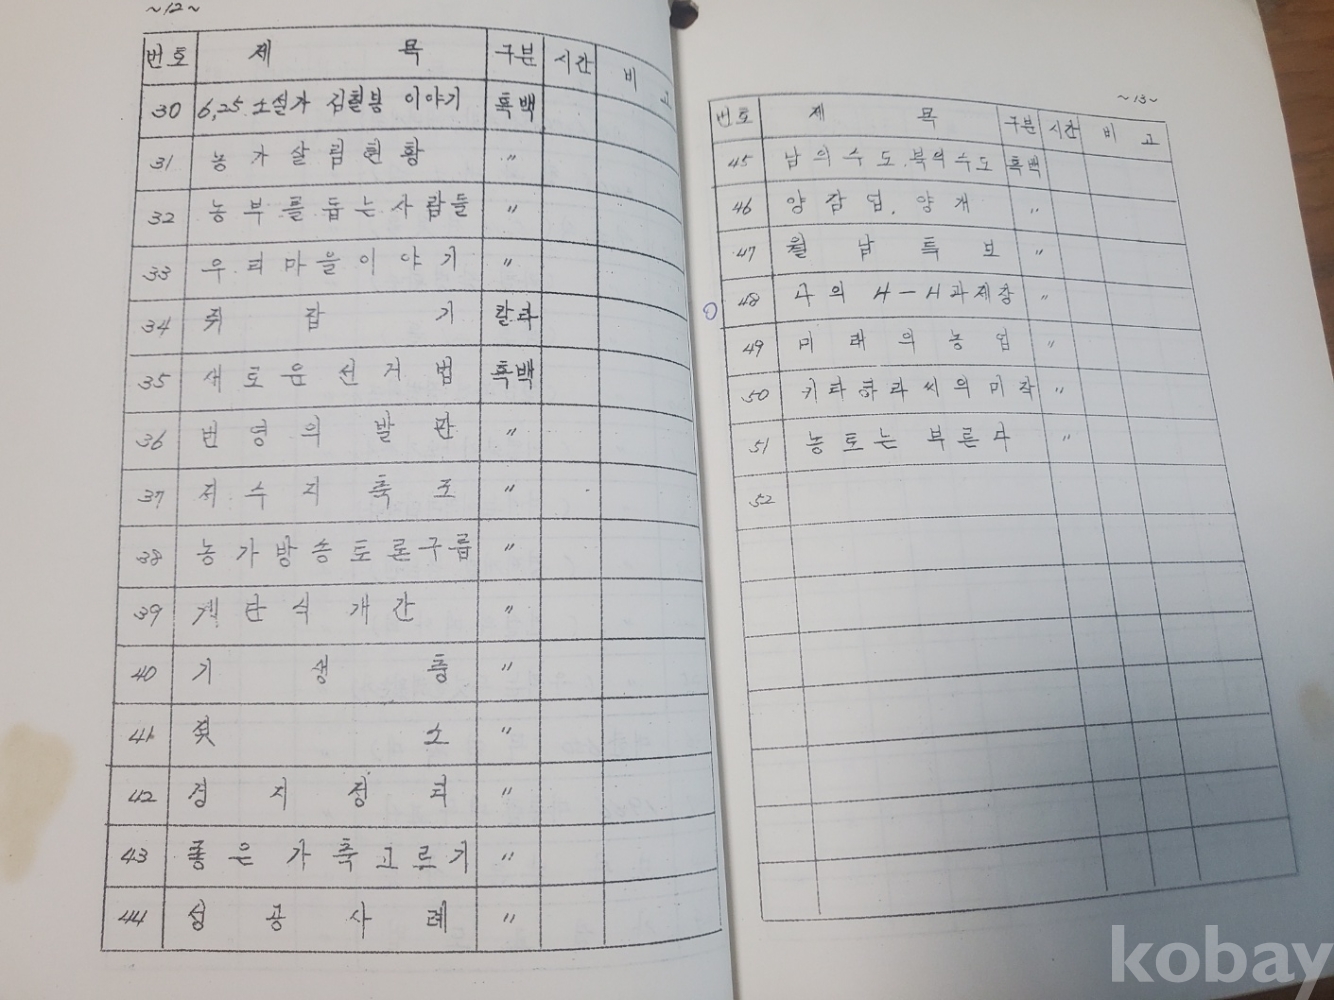 ~12~
번호 제 목 구분 시간 비 고
30 6,25 소설가 김활봉 이야기 흑백
31 농가살림현황 〃
32 농부를 돕는사람들 〃
33 우리마을이야기 〃
34 쥐 잡 기 칼라
35 새로운선거법 흑백
36 번영의 발판 〃
37 저수지 축조 〃
38 농가방송토론구룹 〃
39 계단식 개간 〃
40 기 생 충 〃
41 젖 소 〃
42 경 지 정 리 〃
43 좋은 가축고르기 〃
44 성 공 사 례 〃
~13~
번호 제 목 구분 시간 비 고
45 남의수도.북의수도 흑백
46 양잠업.양계 〃
47 월 남 특 보 〃
48 나의 4-H과제장 〃
49 미래의 농업 〃
50 기타하라씨의미작 〃
51 농토는 부른다 〃
52
kobay